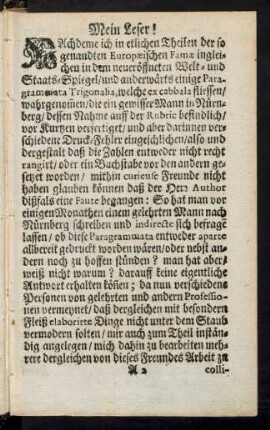 Mein Leser!
NAchdeme ich in etlichen Theilen der so
genandten Europæischen Famæ inglei-
chen in dem neueröffneten Welt- und
Staats-Spiegel/ und anderwärts einige Para-
grammata Trigonalia, welche ex cabbala fliessen/
wahrgenom̃en/ die ein gewisser Mann in Nürn-
berg/ dessen Nahme auff der Rubric befindlich/
vor kurtzen verfertiget/ und aber darinnen ver-
schiedene Druck-Fehler eingeschlichen/ also und
dergestalt daß die Zahlen entweder nicht recht
rangirt/ oder ein Buchstabe vor den andern ge-
setzet worden/ mithin curieuse Freunde nicht
haben glauben können daß der Herr Author
dißfals eine Faute begangen: So hat man vor
einigen Monathen einem gelehrten Mann nach
Nürnberg schreiben und indirecte sich befragt
lassen/ ob diese Paragrammata entweder aparte
allbereit gedruckt worden wären/ oder nebst an-
dern noch zu hoffen stünden? man hat aber/
weiß nicht warum? darauff keine eigentliche
Antwort erhalten köñen; da nun verschiedene
Personen von gelehrten und andern Professio-
nen vermeynet/ daß dergleichen mit besondern
Fleiß elaborirte Dinge nicht unter dem Staub
vermodern solten/ mir auch zum Theil instän-
dig angelegen/ mich dahin zu bearbeiten meh-
rere dergleichen von dieses Freundes Arbeit zu
A 2 colli-